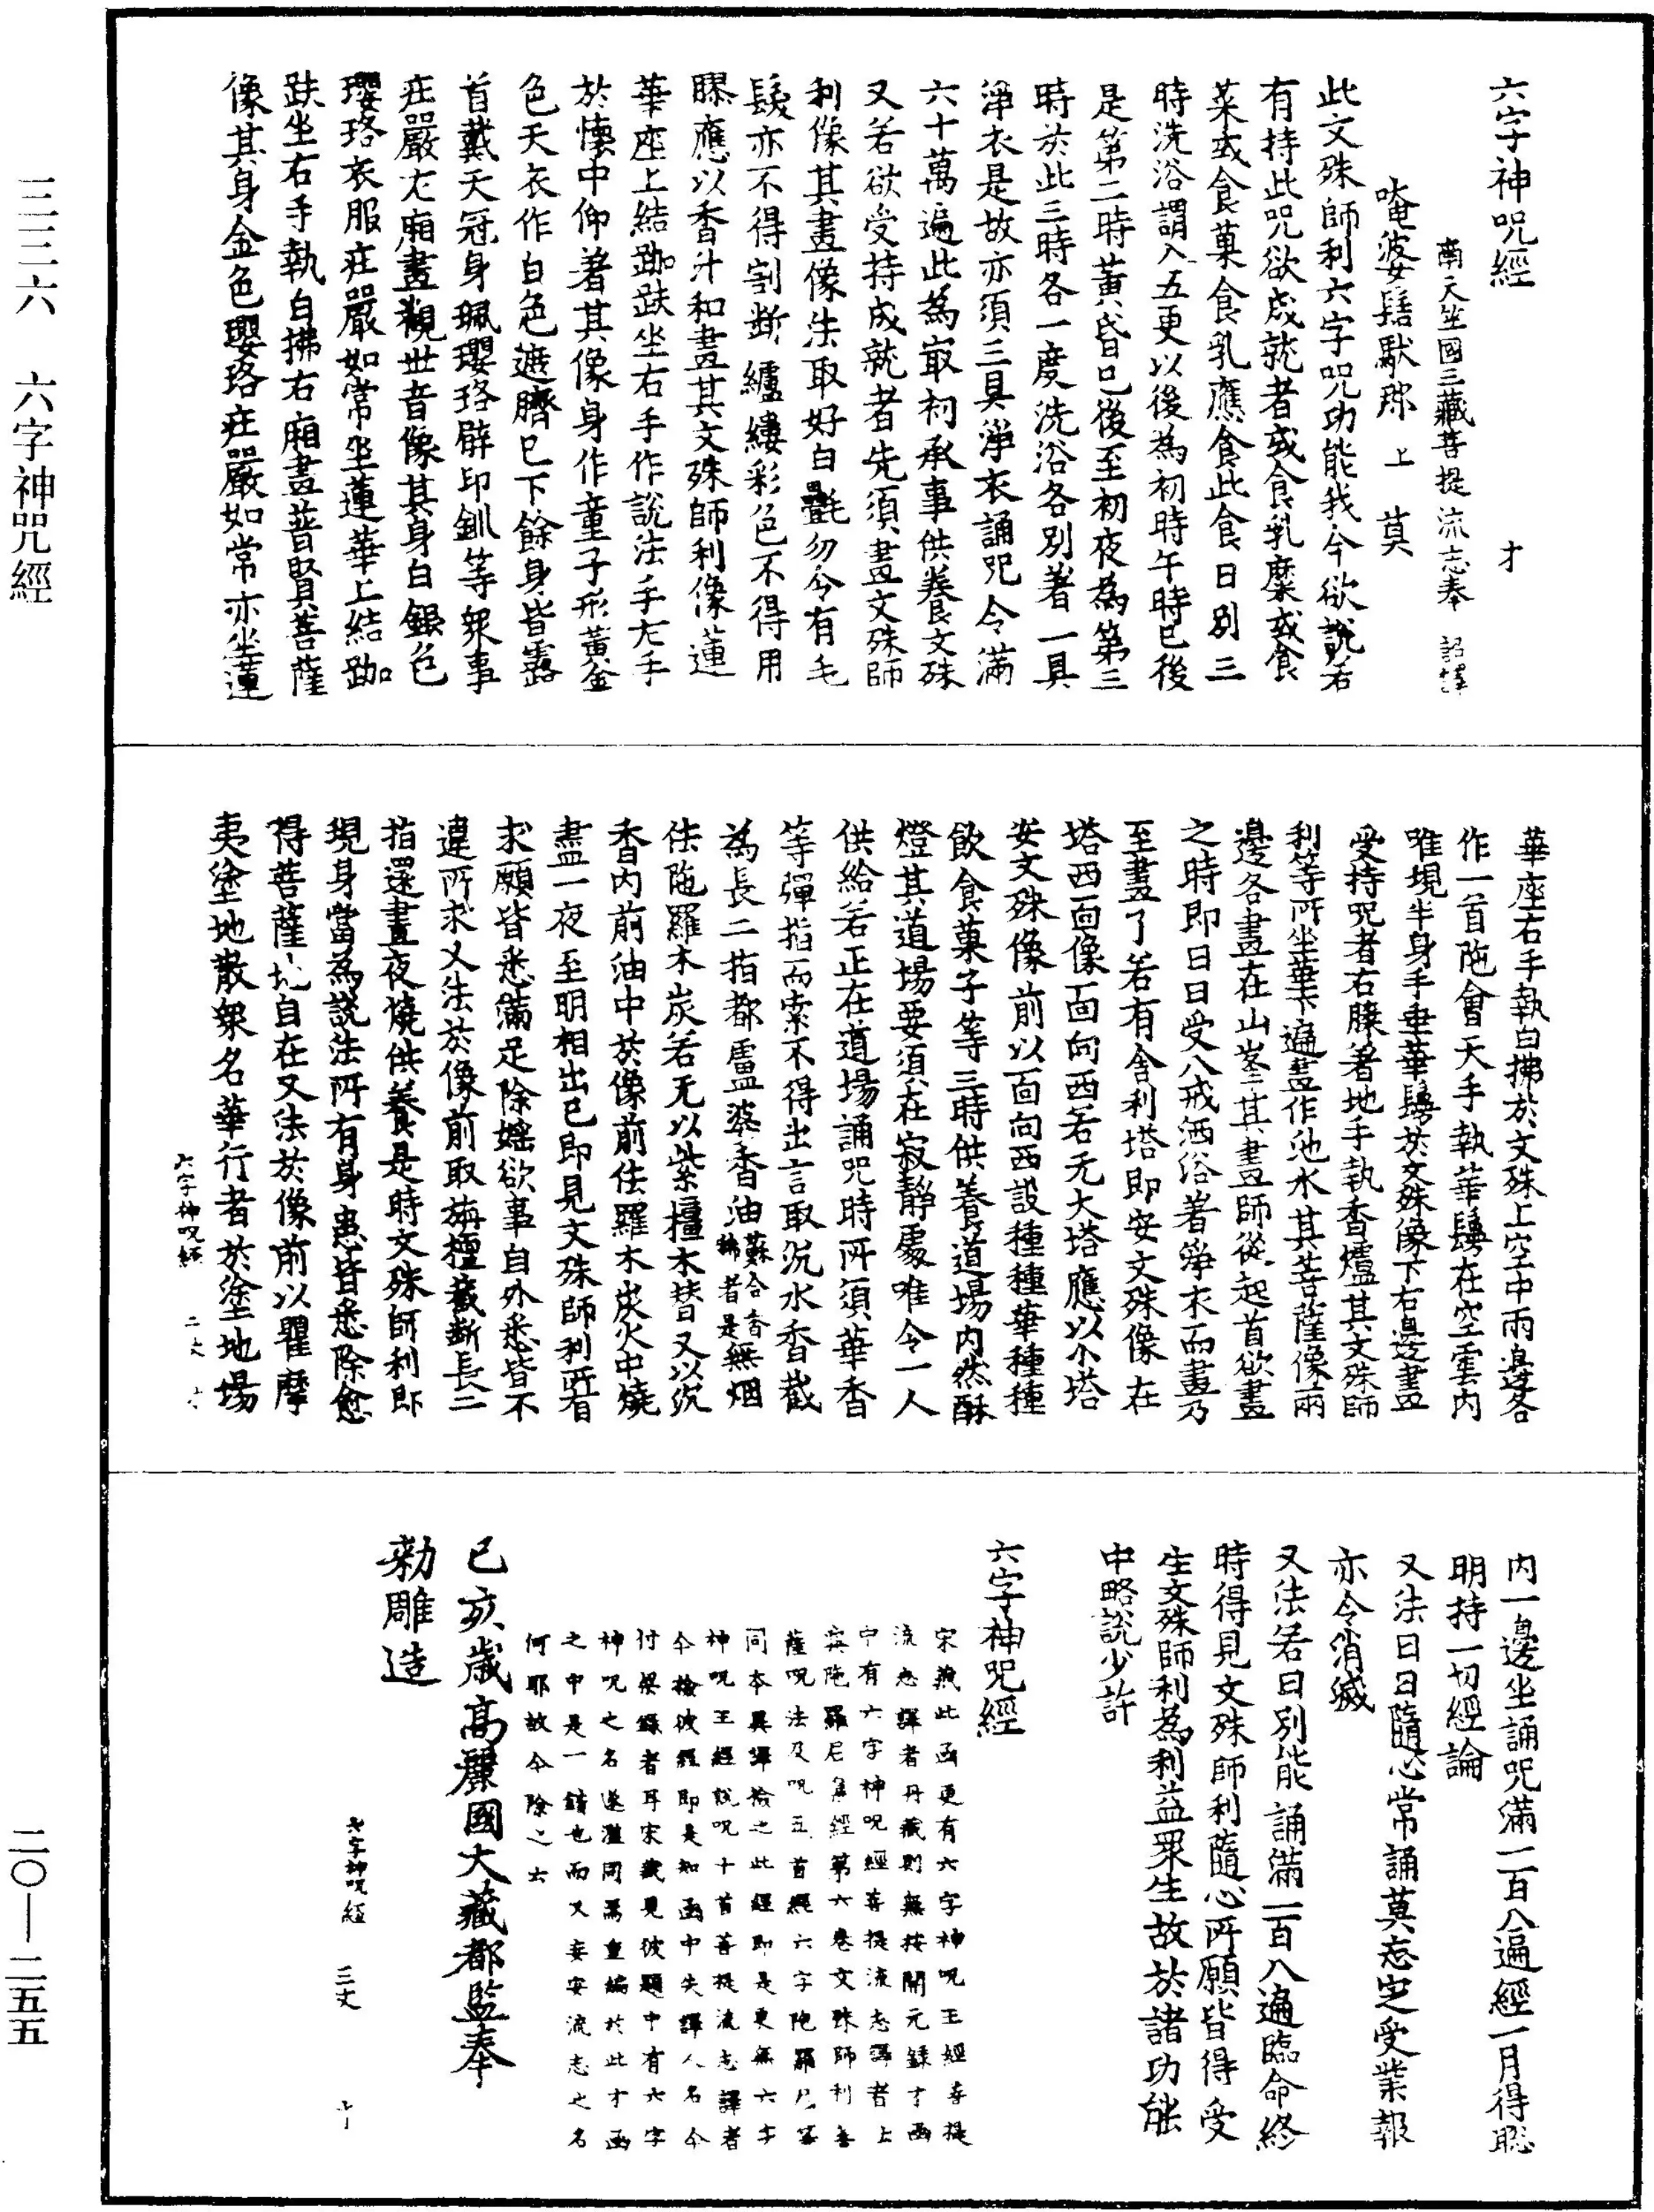 三三六　六字神咒經
二〇—二五五
六字神呪經　才
南天竺國三藏菩提流志奉　詔譯
唵婆髻馱那　上　莫
此文殊師利六字呪功能我今欲說若
有持此呪欲成就者或食乳糜或食
菜或食菓食乳應食此食日別三
時洗浴謂入五更以後為初時午時已後
是第二時黃昏已後至初夜為第三
時於此三時各一度洗浴各別著一具
淨衣是故亦須三具淨衣誦呪令滿
六十萬遍此為冣初承事供養文殊
又若欲受持成就者先須畫文殊師
利像其畫像法取好白㲲勿令有毛
髮亦不得割斷纑縷彩色不得用
膠應以香汁和畫其文殊師利像蓮
華座上結跏趺坐右手作說法手左手
於懷中仰著其像身作童子形黃金
色天衣作白色遮臍已下餘身皆露
首戴天冠身珮瓔珞臂印釧等衆事
莊嚴左廂畫觀世音像其身白銀色
瓔珞衣服莊嚴如常坐蓮華上結跏
趺坐右手執白拂右廂畫普賢菩薩
像其身金色瓔珞莊嚴如常亦坐蓮
華座右手執白拂於文殊上空中兩邊各
作一首陁會天手執華鬘在空雲內
唯現半身手垂華鬘於文殊像下右邊畫
受持呪者右膝著地手執香爐其文殊師
利等所坐華下遍畫作池水其菩薩像兩
邊各畫在山峯其畫師從起首欲畫
之時即日日受八戒洒浴著淨衣而畫乃
至畫了若有舍利塔即安文殊像在
塔西面像面向西若无大塔應以小塔
安文殊像前以面向西設種種華種種
飲食菓子等三時供養道場內然酥
燈其道場要須在寂靜處唯令一人
供給若正在道場誦呪時所須華香
等彈指而索不得出言取沉水香截
為長二指都盧婆香油蘇合香是無烟
佉陁羅木炭若无以紫橿木替又以沉
香內前油中於像前佉羅木炭火中燒
盡一夜至明相出已即見文殊師利所有
求願皆悉滿足除婬欲事自外悉皆不
違所求又法於像前取栴檀截斷長二
指還晝夜燒供養是時文殊師利即
現身當為說法所有身患皆悉除愈
得菩薩地自在又法於像前以瞿摩
夷塗地散衆名華行者於塗地場
六字神呪經　二丈　才
內一邊坐誦呪滿一百八遍經一月得聡
明持一切經論
又法日日隨心常誦莫忘定受業報
亦令消滅
又法若日別能誦滿一百八遍臨命終
時得見文殊師利隨心所願皆得受
生文殊師利為利益眾生故於諸功能
中略說少許
六字神呪經
宋藏此函更有六字神呪王經菩提
流志譯者丹藏則無按開元錄才函
中有六字神呪經菩提流志譯者上
與陁羅尼集經第六卷文殊師利菩
薩呪法及呪五首經六字陁羅尼等
同本異譯撿之此經即是更無六字
神呪王經說呪十首菩提流志譯者
今撿彼經即是知函中失譯人名今
付梁錄者耳宋藏見彼題中有六字
神呪之名遂濫同為重編於此才函
之中是一錯也而又妄安流志之名
何耶故今除之去
己亥歲高麗國大藏都監奉
勑雕造
六字神呪經　三丈　才